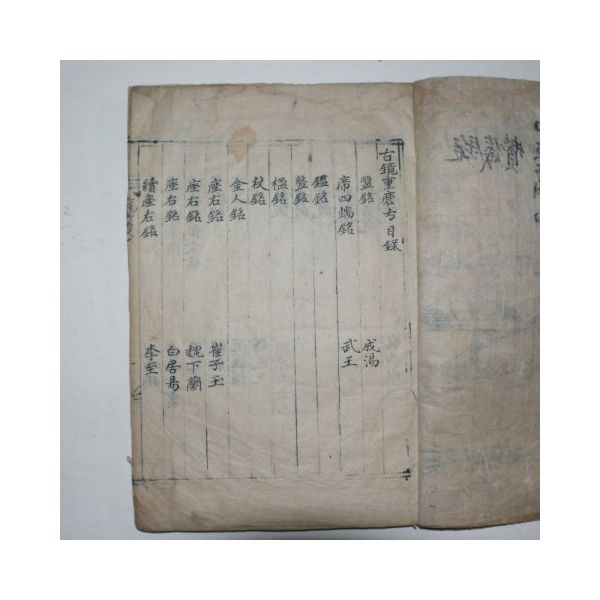 古鏡重磨方目録
盤銘 成湯
席四端銘 武王
鑑銘
盤銘
楹銘
杖銘
金人銘
座右銘 崔子玉
座右銘 魏下蘭
座右銘 白居易
續座右銘 李至